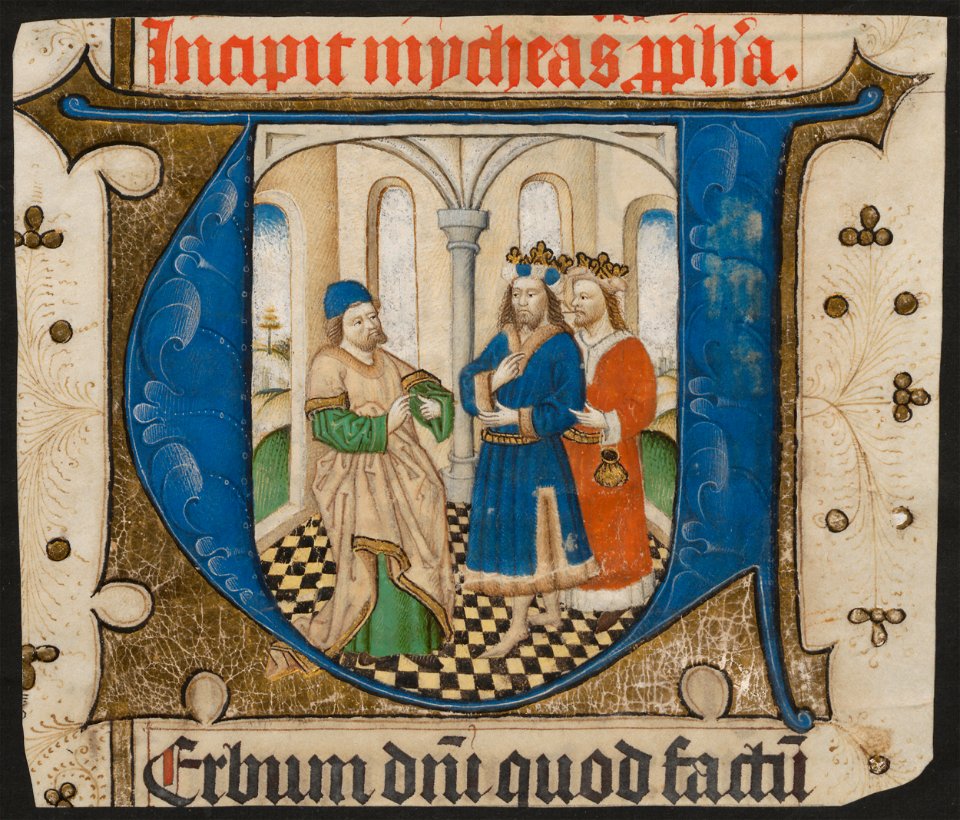 Incipit mycheas pph̄a.
U
Erbum dn̄i quod factū